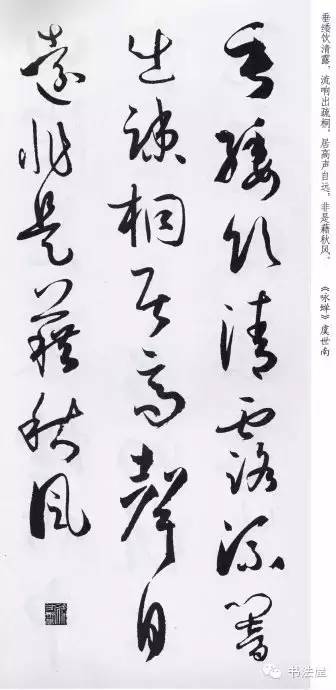 垂緌饮清露流響
出疎桐居高聲自
遠非是藉秋风
垂緌饮清露，流响出疏桐。居高声自远，非是藉秋风。
《咏蝉》虞世南
书法屋